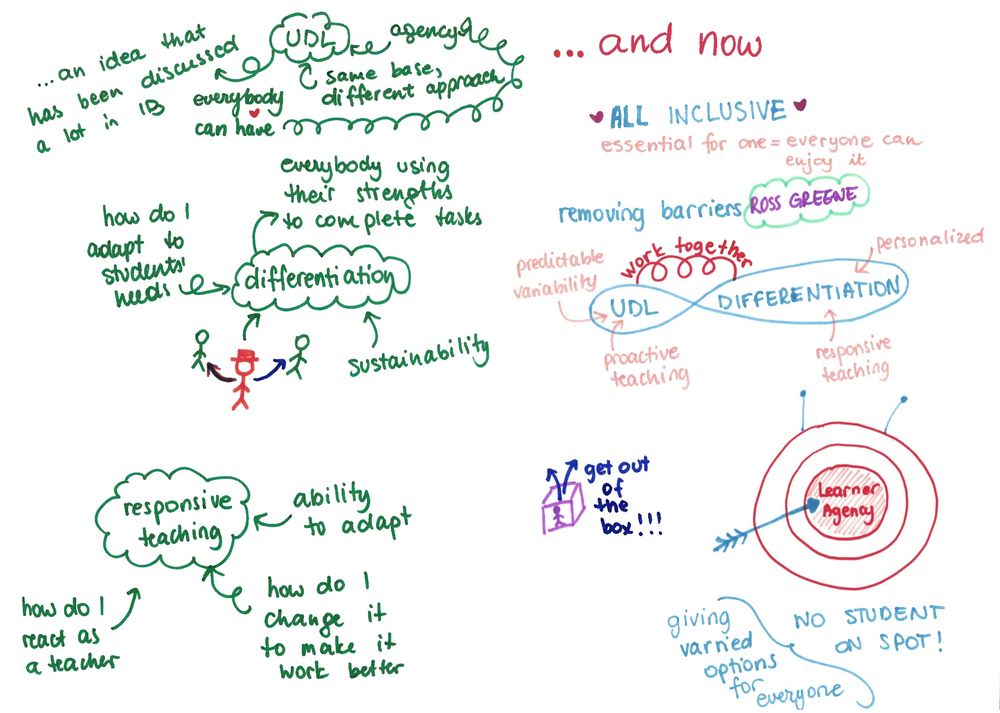 ...an idea that
has been discussed
a lot in IB
UDL
agency
same base,
different approach
everybody
can have
everybody using
their strengths
to complete tasks
how do I
adapt to
students'
needs
differentiation
sustainability
responsive
teaching
ability
to adapt
how do I
react as
a teacher
how do I
change it
to make it
work better
...and now
ALL INCLUSIVE
essential for one = everyone can
enjoy it
removing barriers
ROSS GREENE
work together
predictable
variability
personalized
UDL
DIFFERENTIATION
proactive
teaching
responsive
teaching
get out
of
the
box!!!
Learner
Agency
giving
varried
options
for
everyone
NO STUDENT
ON SPOT!